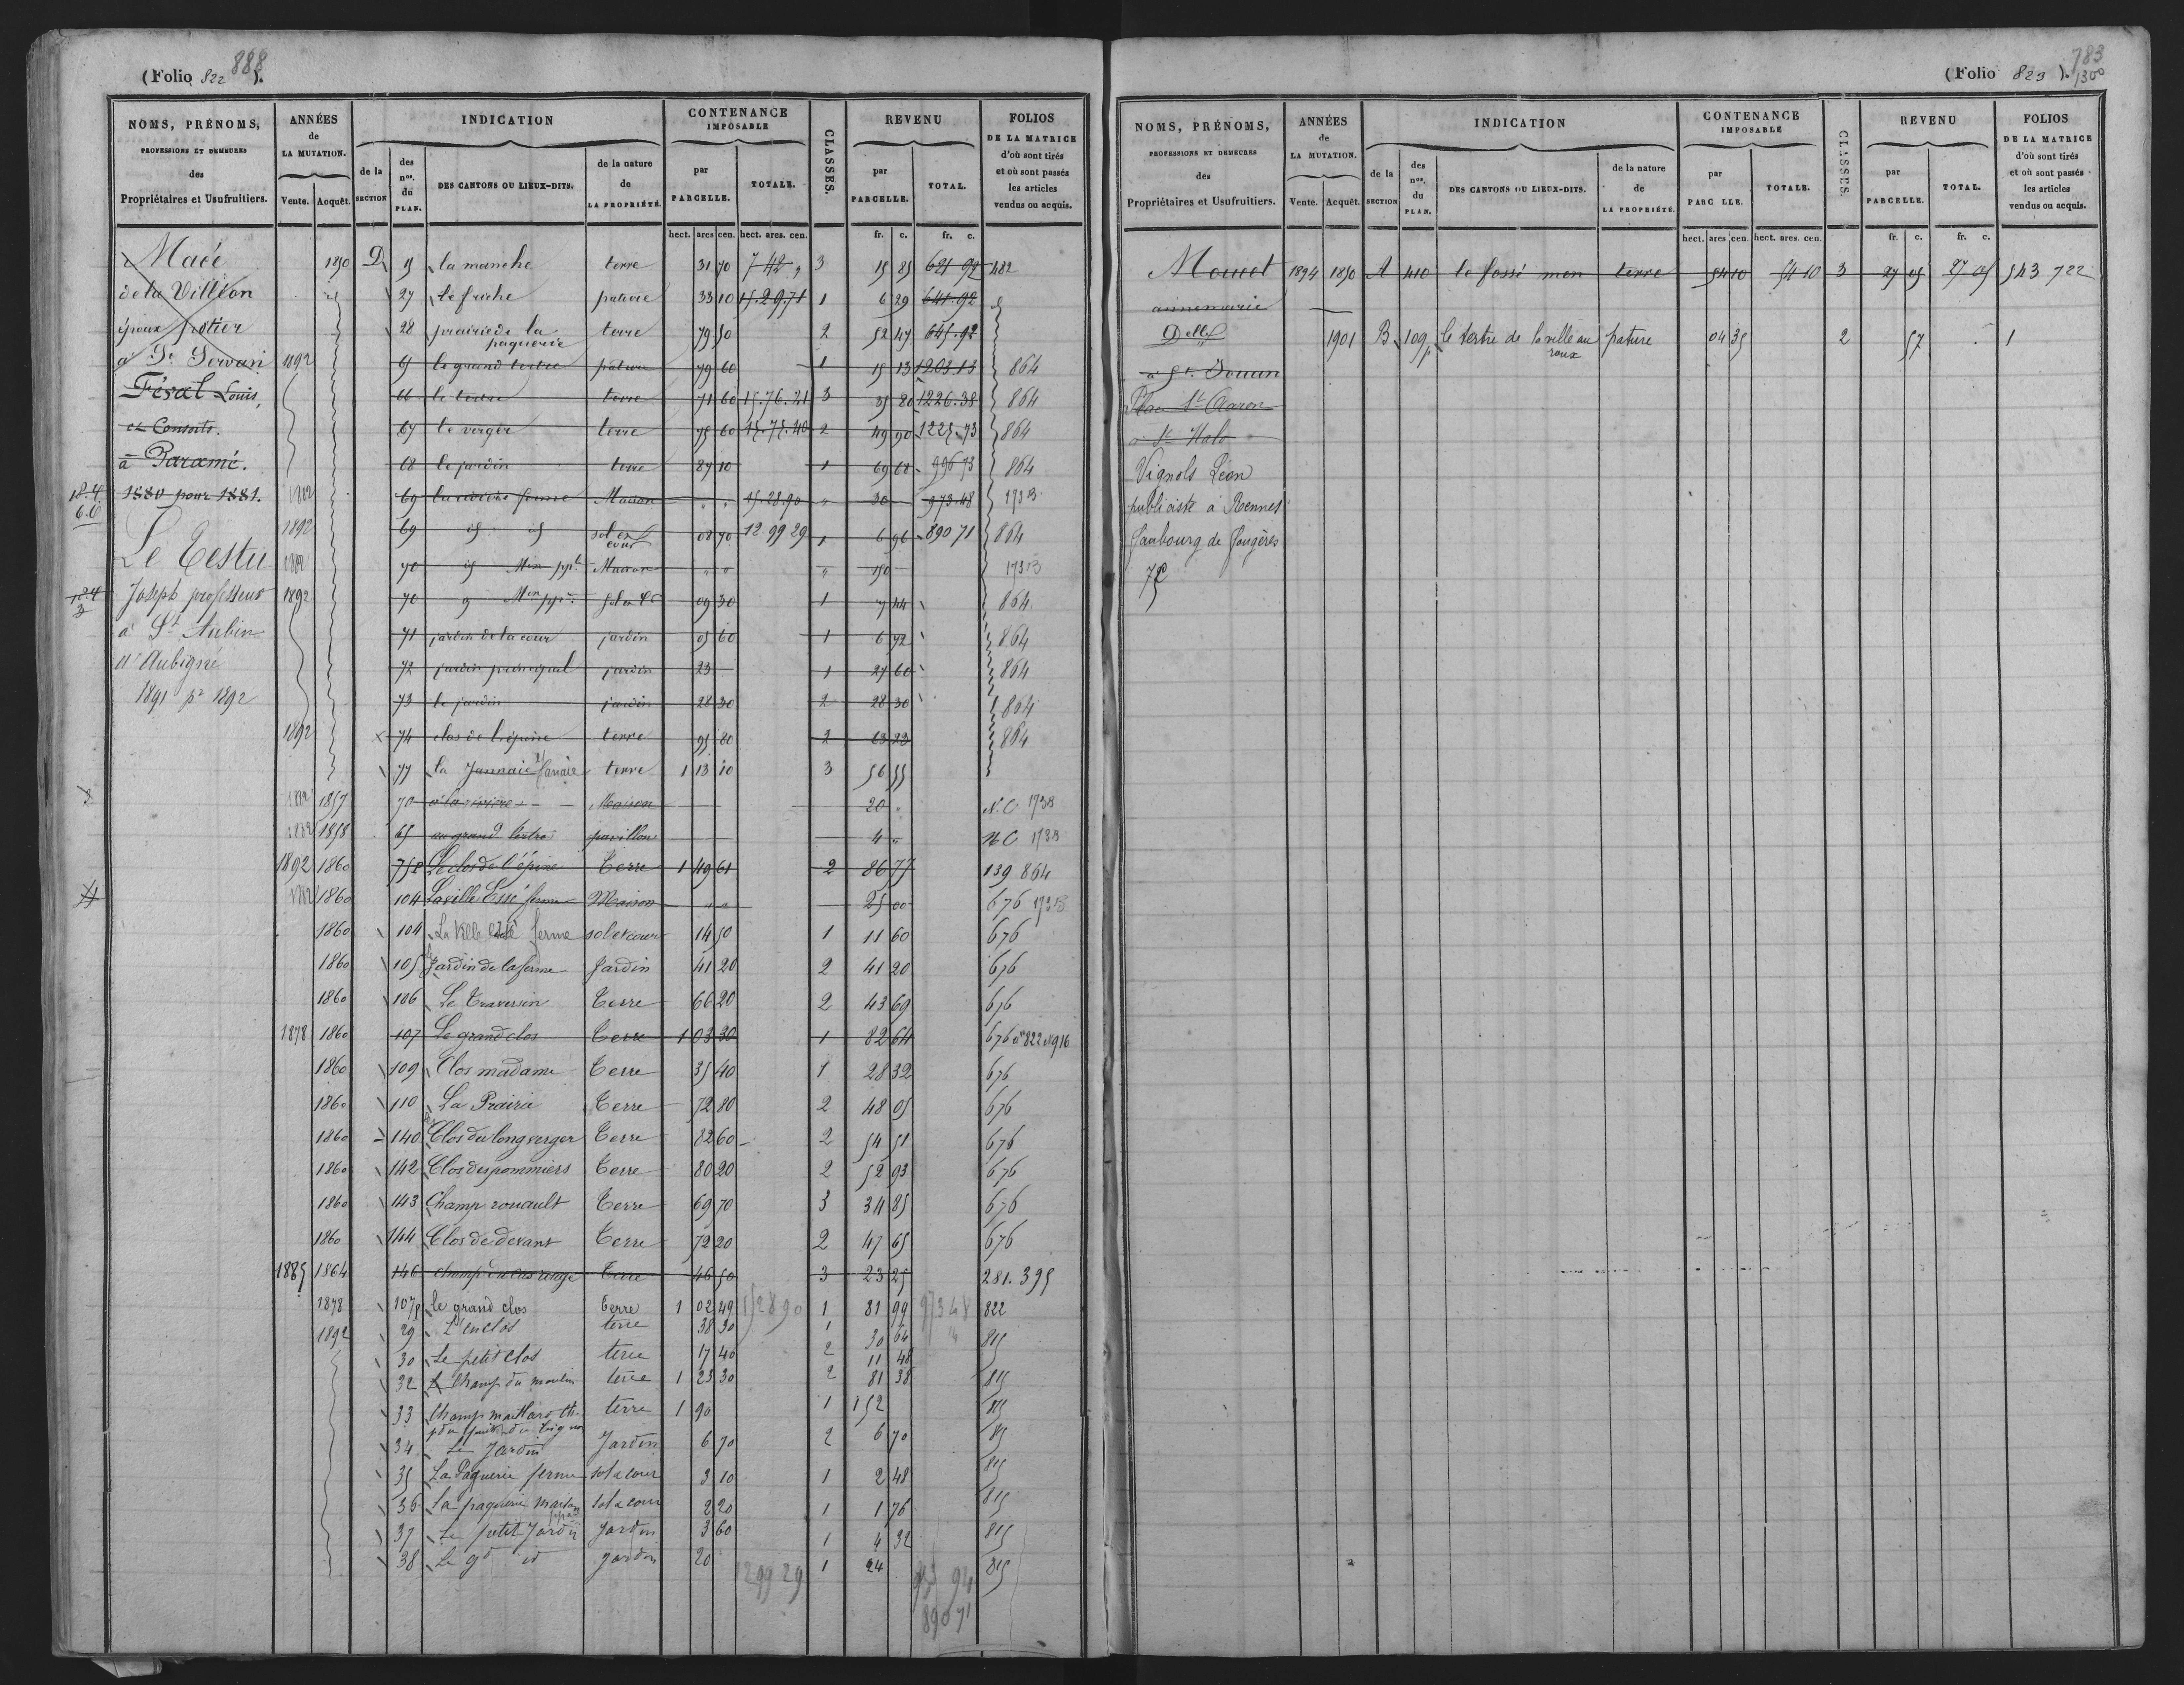 (Folio 822 888 ).
NOMS, PRÉNOMS, PROFESSIONS ET DEMEURES des Propriétaires et Usufruitiers.
ANNÉES de LA MUTATION. Vente. Acquêt.
INDICATION
de la SECTION
des nos. du PLAN.
DES CANTONS OU LIEUX-DITS.
de la nature de LA PROPRIÉTÉ.
CONTENANCE IMPOSABLE
par PARCELLE. TOTALE.
CLASSES.
REVENU
par PARCELLE. TOTAL.
FOLIOS DE LA MATRICE d'où sont tirés et où sont passés les articles vendus ou acquis.
hect. ares cen. hect. ares. cen. fr. c. fr. c.
Macé
de la Villéon
époux potier
à St Servan
Féval Louis,
et Consorts.
à Paramé.
1880 pour 1881.
Le Testu
Joseph professeur
à St Aubin
d'Aubigné
1891 pr 1892
1850 D 15 la manche terre 31 70 7 42 3 15 85 621 92 482
27 le friche pature 33 10 15.29.71 1 6 29 641.92
28 prairie de la paquerie terre 79 50 2 52 47 645.92
1892 65 le grand tertre pature 79 60 1 15 13 1203.13 864
66 le tertre terre 71 60 15.76.21 3 35 80 1226.38 864
67 le verger terre 75 60 15.75.40 2 49 90 1225.73 864
68 le jardin terre 87 10 1 69 68 996 73 864
1882 69 la rivière ferme Maison 15.28.90 30 973.48 173 B
1892 69 id id sol et cour 08 70 12 99 29 1 6 96 890 71 864
1882 70 id Mon pple Maison 150 173 B
1892 70 Mon pple sol et Cr 09 30 1 7 44 864
71 jardin de la cour jardin 05 60 1 6 72 864
72 jardin principal jardin 23 1 27 60 864
73 le jardin jardin 28 30 2 28 30 864
1892 74 clos de l'épine terre 95 80 2 63 23 864
77 la Jannaie terre 1 13 10 3 56 55
1882 1857 70 à la rivière Maison 20 N.C. 173 B
1882 1858 65 au grand tertre pavillon 4 N C 173 B
1892 1860 75 p Le clos de l'épine Terre 1 49 61 2 86 77 139 864
1882 1860 104 La ville Essé ferme Maison 25 00 676 173 B
1860 104 La Ville Essé ferme sol et cour 14 50 1 11 60 676
1860 105 Jardin de la ferme Jardin 41 20 2 41 20 676
1860 106 Le Traversin Terre 66 20 2 43 69 676
1878 1860 107 Le grand clos Terre 1 03 30 1 82 64 676 à 822 et 916
1860 109 Clos madame Terre 35 40 1 28 32 676
1860 110 La Prairie Terre 72 80 2 48 05 676
1860 140 Clos du long verger Terre 82 60 2 54 51 676
1860 142 Clos des pommiers Terre 80 20 2 52 93 676
1860 143 Champ rouault Terre 69 70 3 34 85 676
1860 144 Clos de devant Terre 72 20 2 47 65 676
1885 1864 146 Terre 46 50 3 23 25 281.395
1878 107 p le grand clos terre 1 02 49 15 28 90 1 81 99 973 48 822
1892 29 L'enclos terre 38 30 1 30 64 815
30 Le petit clos terre 17 40 2 11 48
32 Le Champ du moulin terre 1 23 30 2 81 38 815
33 Champ terre 1 90 1 152 815
34 Le Jardin Jardin 6 70 2 6 70 815
35 La Paquerie ferme sol et cour 3 10 1 2 48 815
36 La paquerie maison sol et cour 2 20 1 1 76 815
37 Le petit Jardin Jardin 3 60 1 4 32 815
38 Le gd id Jardin 20 1 24 815
12 99 29
890 71
(Folio 823 ). 783 1300
NOMS, PRÉNOMS, PROFESSIONS ET DEMEURES des Propriétaires et Usufruitiers.
ANNÉES de LA MUTATION. Vente. Acquêt.
INDICATION
de la SECTION
des nos. du PLAN.
DES CANTONS OU LIEUX-DITS.
de la nature de LA PROPRIÉTÉ.
CONTENANCE IMPOSABLE
par PARC LLE. TOTALE.
CLASSES.
REVENU
par PARCELLE. TOTAL.
FOLIOS DE LA MATRICE d'où sont tirés et où sont passés les articles vendus ou acquis.
hect. ares cen. hect. ares. cen. fr. c. fr. c.
Mouet 1894 1850 A 410 le fossé men terre 54 10 54 10 3 27 05 27 05 543 722
annemarie
Delle 1901 B 109 p le tertre de la ville au roux pature 04 35 2 57 1
à St. Jouan
Place St Aaron
à St Malo
Vignols Léon
publiciste à Rennes
faubourg de fougères
72